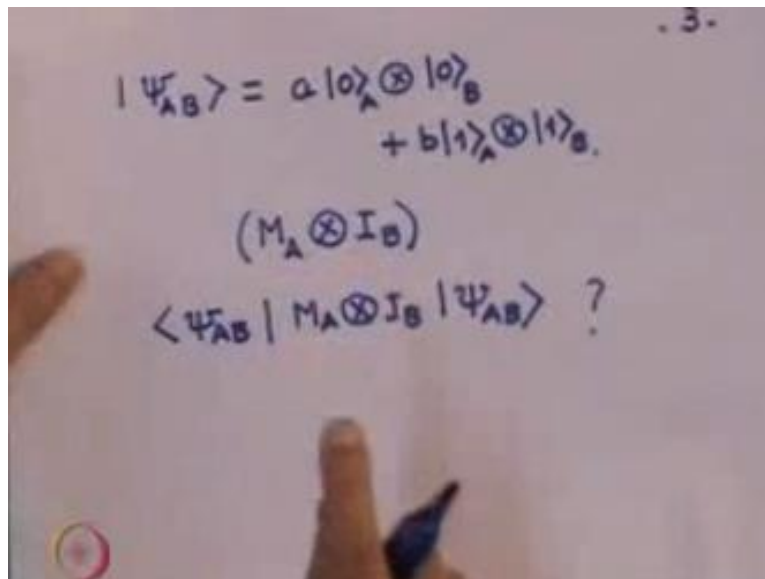 . 3 .
|Ψ_AB⟩ = a|0⟩_A ⊗ |0⟩_B
+ b|1⟩_A ⊗ |1⟩_B.
(M_A ⊗ I_B)
⟨Ψ_AB | M_A ⊗ I_B | Ψ_AB⟩ ?